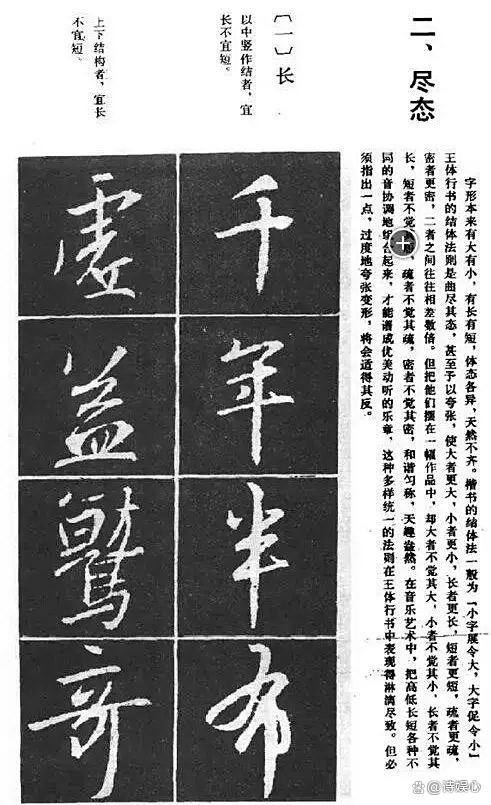 二、尽态
字形本来有大有小，有长有短，体态各异，天然不齐。楷书的结体法一般为『小字展令大，大字促令小』
王体行书的结体法则是曲尽其态，甚至予以夸张，使大者更大，小者更小，长者更长，短者更短，疏者更疏，
密者更密，二者之间往往相差数倍。但把他们摆在一幅作品中，却大者不觉其大，小者不觉其小，长者不觉其
长，短者不觉，疏者不觉其疏，密者不觉其密，和谐匀称，天趣盎然。在音乐艺术中，把高低长短各种不
同的音协调地合起来，才能谱成优美动听的乐章，这种多样统一的法则在王体行书中表现得淋漓尽致。但必
须指出一点，过度地夸张变形，将会适得其反。
〔一〕长
以中竖作结者，宜
长不宜短。
千
年
半
布
上下结构者，宜长
不宜短。
虚
益
奇
@诗娱心